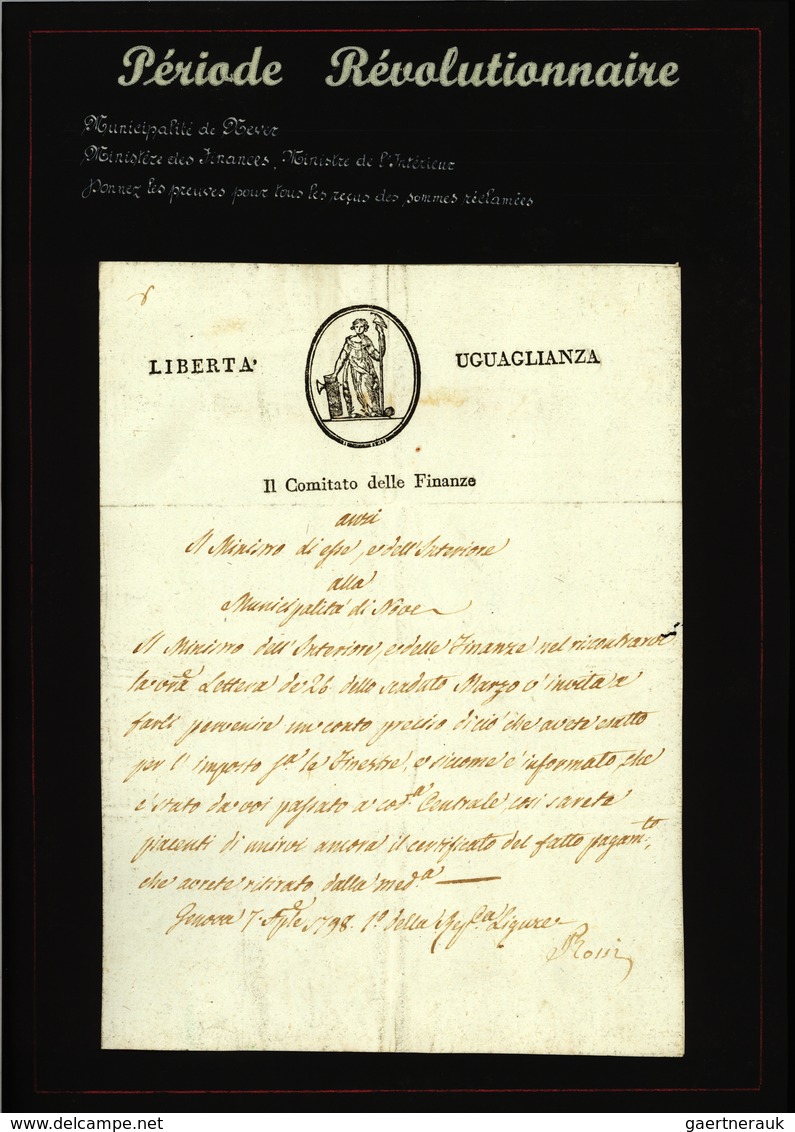 Période Révolutionnaire
Municipalité de Never
Ministère des Finances, Ministre de l'Intérieur
Donnez les preuves pour tous les reçus des sommes réclamées
LIBERTA' UGUAGLIANZA
Il Comitato delle Finanze
Il Ministro di esse, e dell'Interiore
alla
Municipalità di Nove
Il Ministro dell'Interiore, e delle Finanze nel riscontrarvi
la vra Lettera de 26 dello scaduto Marzo v'invita a
farli pervenire un conto preciso di ciò che avete esatto
per l'imposto sa le Finestre, e siccome è informato, che
è stato da voi passato a coda Centrale, così sarete
piacenti di unirvi ancora il certificato del fatto pagamto,
che avrete ritirato dalla meda
Genova 7 Aple 1798. 1o della Repca Ligure
Rossi
delcampe.net
gaertnerauk